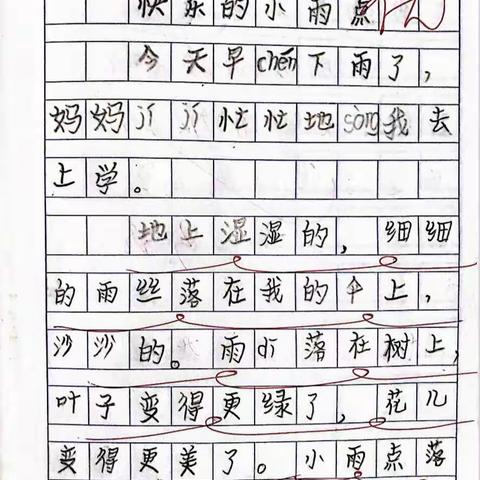 快乐的小雨点
今天早chén下雨了，
妈妈jí jí忙忙地sòng我去
上学。
地上湿湿的，细细
的雨丝落在我的伞上，
沙沙的。雨dī落在树上，
叶子变得更绿了，花儿
变得更美了。小雨点落